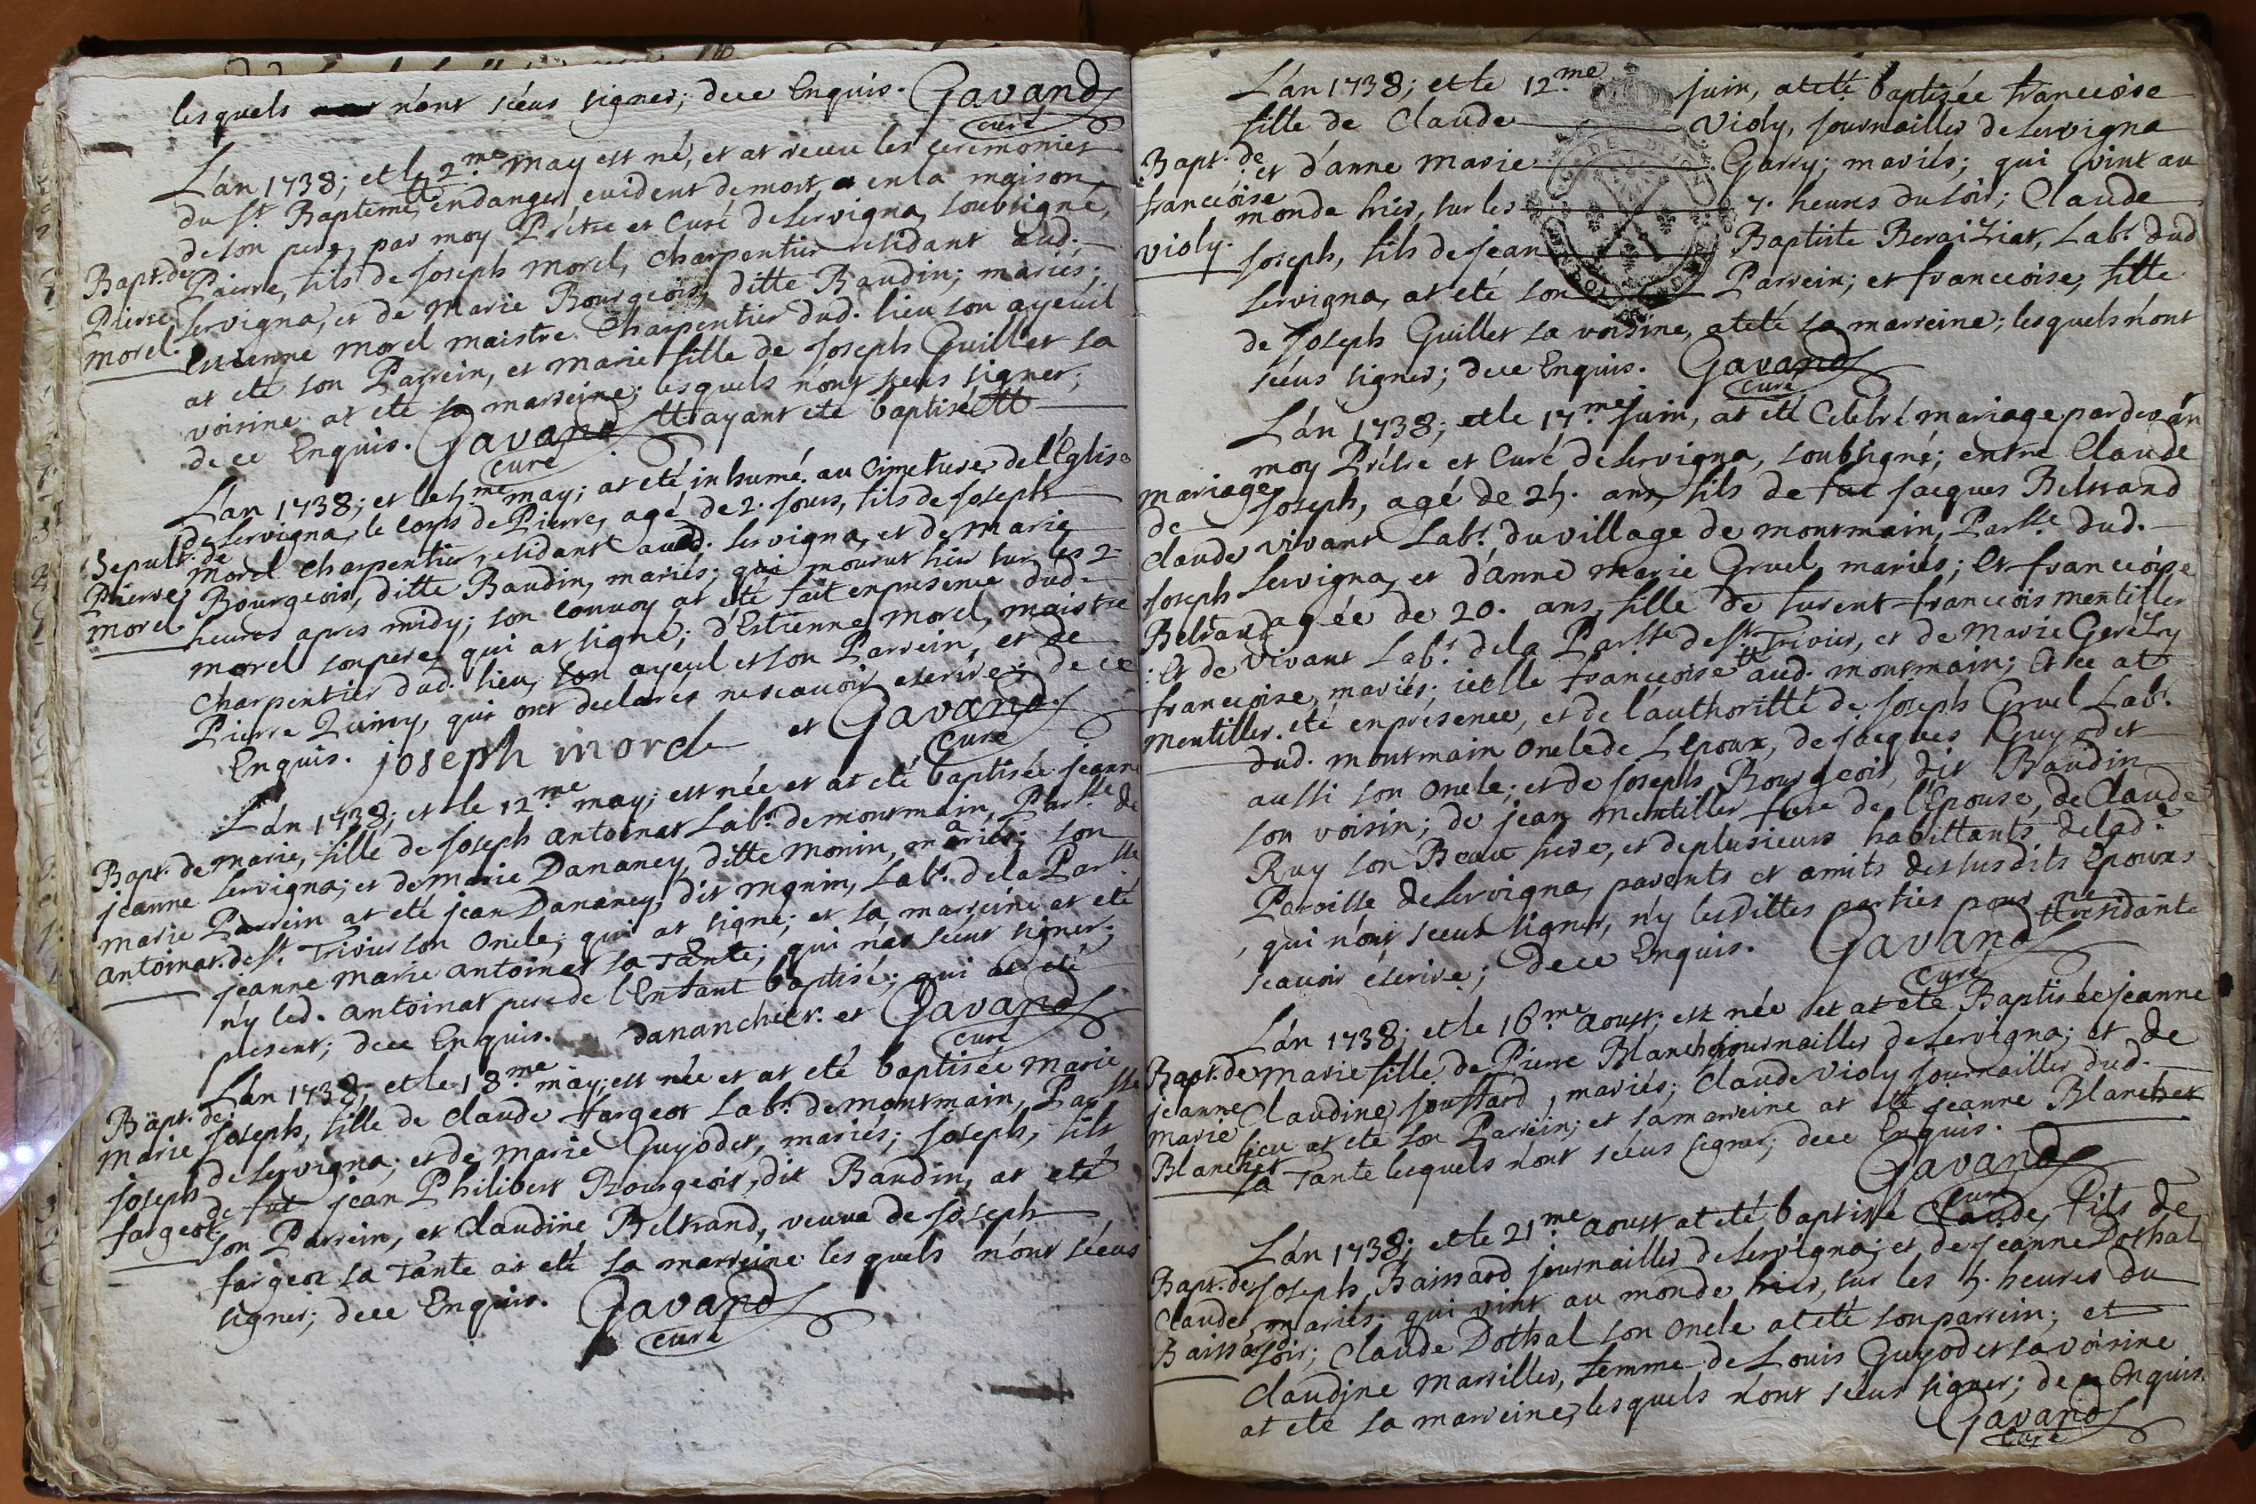 lesquels n'ont sceus signer; dece Enquis. Gavand
curé
L'an 1738; et le 2.me may est né, et at receu les ceremonies
du St. Bapteme, endanger evident demort, en la maison
de son pere, par moy Prêtre et Curé de Servigna, soubsigné,
Bapt. de Pierre, fils de Joseph Morel, Charpentier residant aud.
Pierre Servigna, et de Marie Bourgeois, ditte Baudin; mariés;
morel. Estienne Morel maistre Charpentier dud. lieu son ayeuil
at eté son Parrein, et Marie fille de Joseph Guillet sa
voisine at eté sa marreine; lesquels n'ont sceus signer;
dece Enquis. Gavand ayant eté baptisé
curé
L'an 1738; et le may; at eté inhumé au Cimetiere de l'Eglise
de Servigna, le corps de Pierre, agé de 2. jours, fils de Joseph
Sepult. de Morel Charpentier, residant aud. Servigna, et de Marie
Pierre Bourgeois, ditte Baudin, mariés; qui mourut hier sur les 2
morel heures apres midy; son convoy at eté fait enpresence dud.
morel son pere, qui at signé; d'Estienne Morel, maistre
Charpentier dud. lieu, son ayeul et son Parrein, et de
Pierre Quincy, qui ont declarés nescavoir escrire; de ce
Enquis. joseph morel et Gavand
curé
L'an 1738; et le 12.me may; est née et at eté baptisée jeanne
Bapt. de marie, fille de Joseph antoinat Lab.r de montmain, Par.sse de
jeanne Servigna; et de Marie Dananey, ditte Monin, mariés; son
marie Parrein at eté jean Dananey, dit monin, Lab.r dela Par.sse
antoinat. de St. Trivier son oncle; qui at signé; et sa marreine at eté
jeanne Marie antoinat sa Tante; qui n'at sceut signer;
n'y led. antoinat pere de l'Enfant baptisé; qui at eté
present; dece Enquis. dananchier et Gavand
curé
L'an 1738; et le 18.me may; est née et at eté baptisée Marie
Bapt. de Joseph, fille de Claude fargeot Lab.r de montmain, Par.sse
Marie de Servigna; et de Marie Guyodet, mariés; Joseph, fils
Joseph de fut jean Philibert Bourgeois, dit Baudin, at eté
fargeot. son Parrein, et Claudine Beltrand, veuve de Joseph
fargeot sa Tante at eté sa marreine lesquels n'ont sceus
signer; dece Enquis. Gavand
curé
L'an 1738; et le 12.me juin, at eté baptisée francoise
fille de Claude Violy, journailler de Servigna
Bapt. de et d'anne Marie Garry; mariés; qui vint au
francoise monde hier, sur les 7. heures du soir; Claude
Violy. Joseph, fils de jean Baptiste Beraiziat, Lab.r dud
Servigna, at eté son Parrein; et francoise, fille
de Joseph Guillet sa voisine, at eté sa marreine; lesquels n'ont
sceus signer; dece Enquis. Gavand
curé
L'an 1738; et le 17.me juin, at eté Celebré mariage pardevan
moy Prêtre et Curé de Servigna, soubsigné; entre Claude
mariage Joseph, agé de ans, fils de fut Jacques Beltrand
de vivant Lab.r du village de montmain, Par.sse dud.
Claude Servigna, et d'anne Marie Gruel mariés; Et francoise
Joseph agée de 20. ans, fille de furent francois mentiller
Beltrand vivant Lab.r dela Par.sse de St. Trivier, et de Marie
: Et de mariés; icelle francoise aud. montmain; Et ce at
francoise eté enpresence, et de l'authoritté de Joseph Gruel Lab.r
mentiller. dud. montmain oncle de l'Epoux, de jacques Guyodet
aussi son oncle; et de Joseph Bourgeois, dit Baudin
son voisin; de jean mentiller frere de l'Epouse, de Claude
Ruy son Beau frere, et de plusieurs habittants delad.
Paroisse de Servigna, parents et amits des susdits Epoux
, qui n'ont sceus signer, n'y lesdittes parties pour ne residante
scavoir éscrire; Dece Enquis. Gavand
curé
L'an 1738; et le 16.me aoust; est née et at eté Baptisée jeanne
Bapt. de marie fille de Pierre Blanchet journailler de Servigna; et de
jeanne Claudine Joussard, mariés; Claude Violy journailler dud.
marie lieu at eté son Parrein; et sa marreine at eté jeanne Blanchet
Blanchet sa Tante lesquels n'ont sceus signer; dece Enquis.
Gavand
curé
L'an 1738; et le 21.me aoust at eté baptisé Claude, fils de
Bapt. de Joseph Baissard journailler de Servigna; et de jeanne Dothal
Claude mariés; qui vint au monde hier, sur les heures du
Baissard soir; Claude Dothal son oncle at eté son parrein; et
Claudine Marsiller, femme de Louis Guyodet sa voisine
at eté sa marreine, lesquels n'ont sceus signer; de ce Enquis.
Gavand
curé